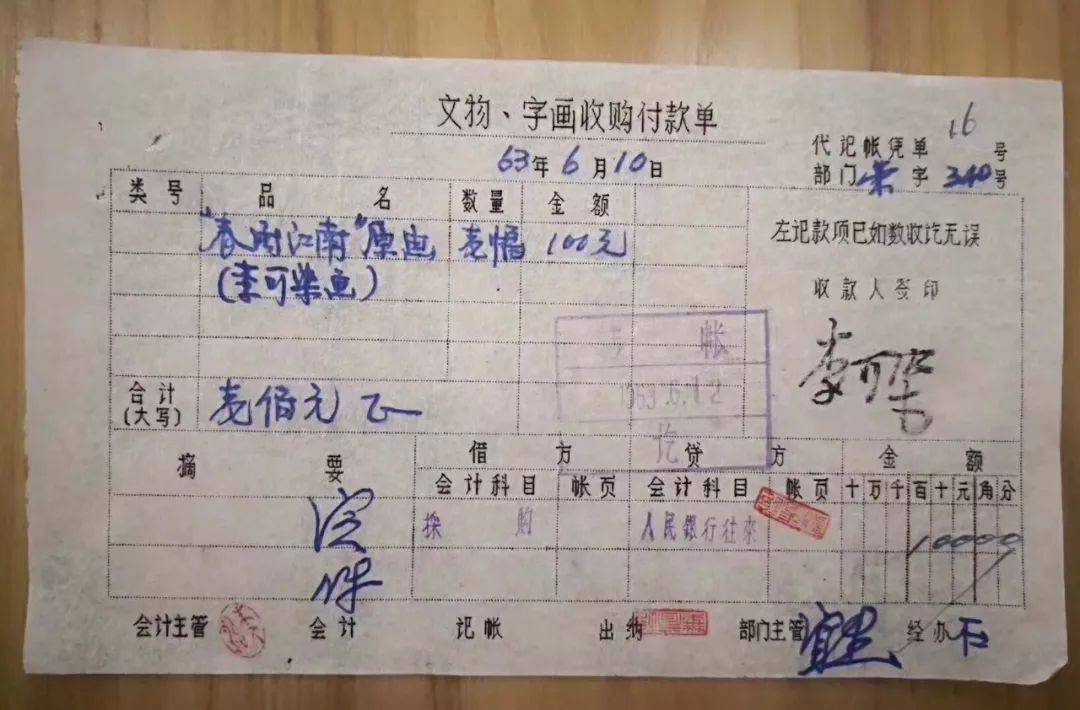 文物、字画收购付款单
16
63年6月10日
代记帐凭单 号
部门荣字340号
类号 品名 数量 金额
"春雨江南"原画 壹幅 100元
(李可染画)
左记款项已如数收讫无误
收款人签印
李可染
帐
1963.6.12
讫
合计
(大写)
壹佰元正
摘要 借方 贷方 金额
会计科目 帐页 会计科目 帐页 十万千百十元角分
採购 人民銀行往來
10000
会计主管 会计 记帐 出纳 部门主管 经办